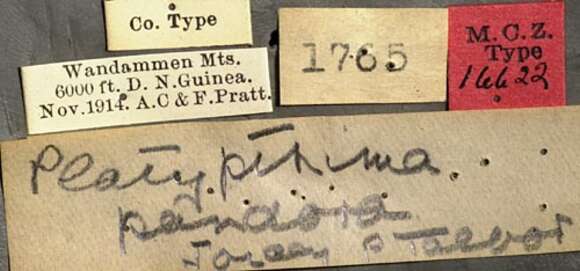 Co. Type
Wandammen Mts.
6000 ft. D. N. Guinea.
Nov. 1914. A.C & F. Pratt.
1765
M. C. Z.
Type
16622
Platypthima . . .
pandora
Joicey & Talbot